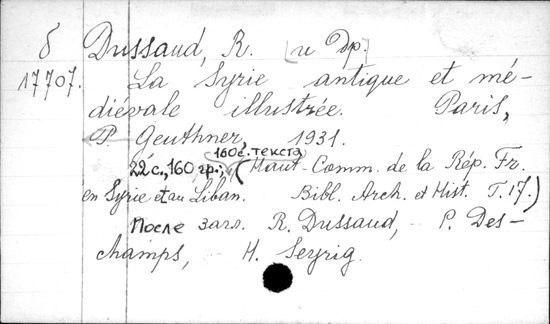 б Dussaud, R. [и др.]
17707. La Syrie antique et mé-
diévale illustrée. Paris,
P. Geuthner, 1931.
160 с. текста
22 с., 160 гр.; (Haut-Comm. de la Rép. Fr.
en Syrie et au Liban. Bibl. Arch. et Hist. T. 17.)
После загл. R. Dussaud, P. Des-
champs, H. Seyrig.